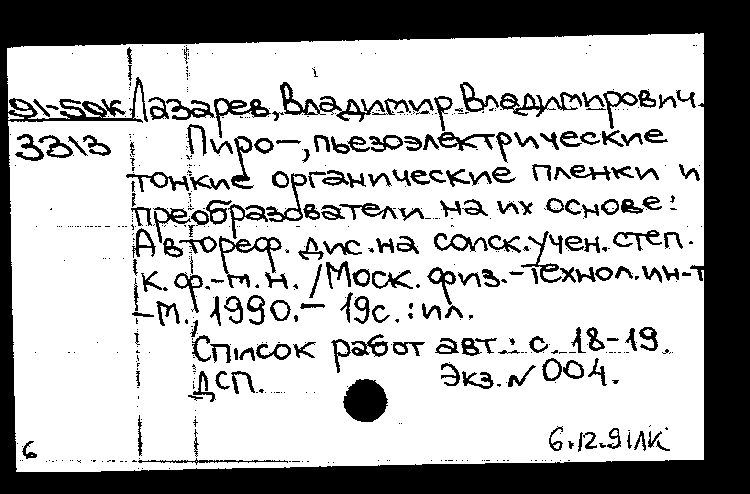 91-50К Лазарев, Владимир Владимирович.
3313 Пиро-, пьезоэлектрические
тонкие органические пленки и
преобразователи на их основе:
Автореф. дис. на соиск. учен. степ.
к. ф.-м. н. / Моск. физ.-технол. ин-т
-М., 1990. - 19с. : ил.
Список работ авт.: с. 18-19.
ДСП. Экз. № 004.
6 6.12.91ЛК